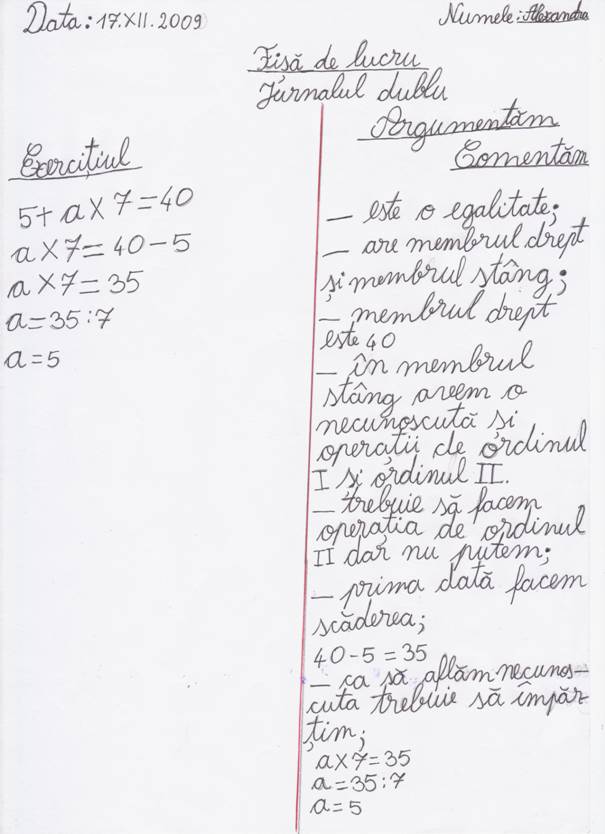 Data: 17.XII.2009
Numele: Alexandra
Fișă de lucru
Jurnalul dublu
Exercițiul
5+ a X 7 = 40
a X 7 = 40 - 5
a X 7 = 35
a = 35 : 7
a = 5
Argumentăm
Comentăm
— este o egalitate;
— are membrul drept
și membrul stâng;
— membrul drept
este 40
— în membrul
stâng avem o
necunoscută și
operații de ordinul
I și ordinul II.
— trebuie să facem
operația de ordinul
II dar nu putem;
— prima dată facem
scăderea;
40 - 5 = 35
— ca să aflăm necunos-
cuta trebuie să împăr-
țim;
a X 7 = 35
a = 35 : 7
a = 5